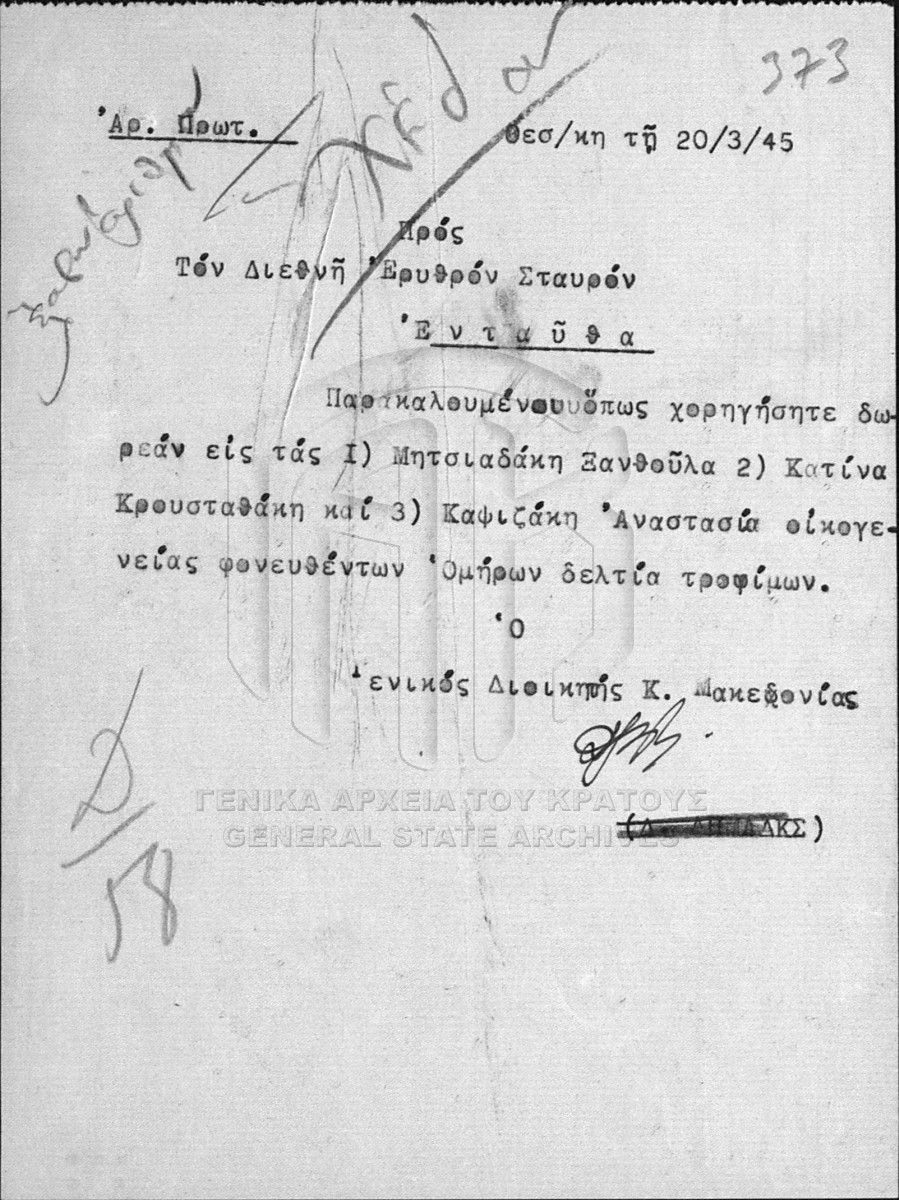 373
Ἀρ. Πρωτ.
Θεσ/κη τῇ 20/3/45
Πρός
Τόν Διεθνῆ Ἐρυθρόν Σταυρόν
Ἐνταῦθα
Παρακαλουμένουυὅπως χορηγήσητε δω-
ρεάν είς τάς Ι) Μητσιαδάκη Ξανθοῦλα 2) Κατίνα
Κρουσταθάκη καί 3) Καψιζάκη Ἀναστασία οἰκογε-
νείας φονευθέντων Ὁμήρων δελτία τροφίμων.
Ὁ
Γενικός Διοικητής Κ. Μακεδονίας
ΓΕΝΙΚΑ ΑΡΧΕΙΑ ΤΟΥ ΚΡΑΤΟΥΣ
GENERAL STATE ARCHIVES
Δ/58